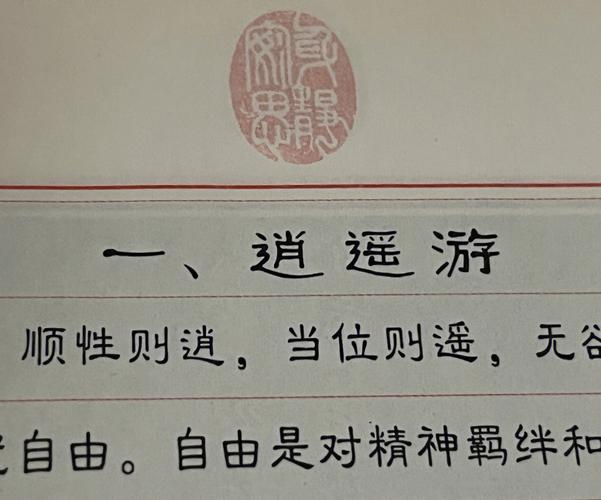 一、逍遥游
顺性则逍，当位则遥，无
自由。自由是对精神羁绊和